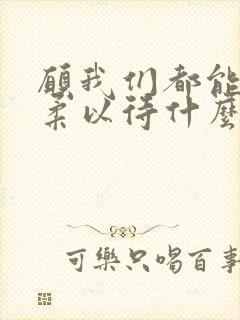 願我们都能
柔以待什麼
可樂只喝百事